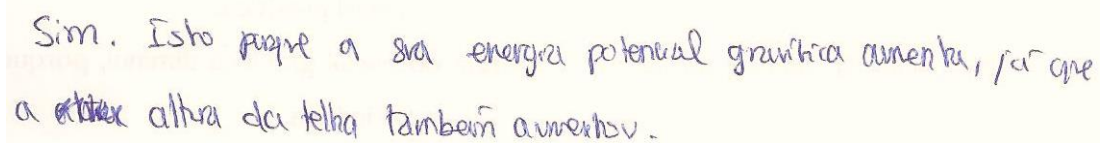 Sim. Isto porque a sua energia potencial gravítica aumenta, já que
a altura da telha também aumentou.